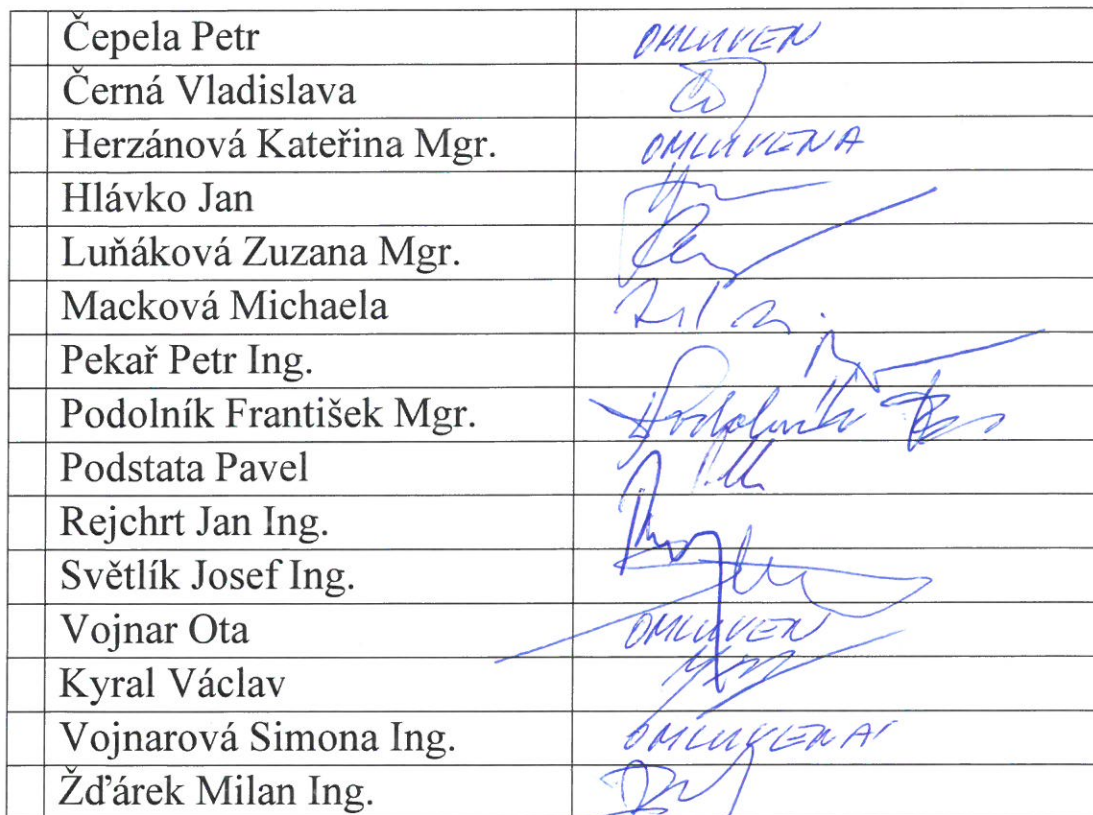 Čepela Petr OMLUVEN
Černá Vladislava
Herzánová Kateřina Mgr. OMLUVENA
Hlávko Jan
Luňáková Zuzana Mgr.
Macková Michaela
Pekař Petr Ing.
Podolník František Mgr. Podolník
Podstata Pavel
Rejchrt Jan Ing.
Světlík Josef Ing.
Vojnar Ota OMLUVEN
Kyral Václav
Vojnarová Simona Ing. OMLUVENA
Žďárek Milan Ing.